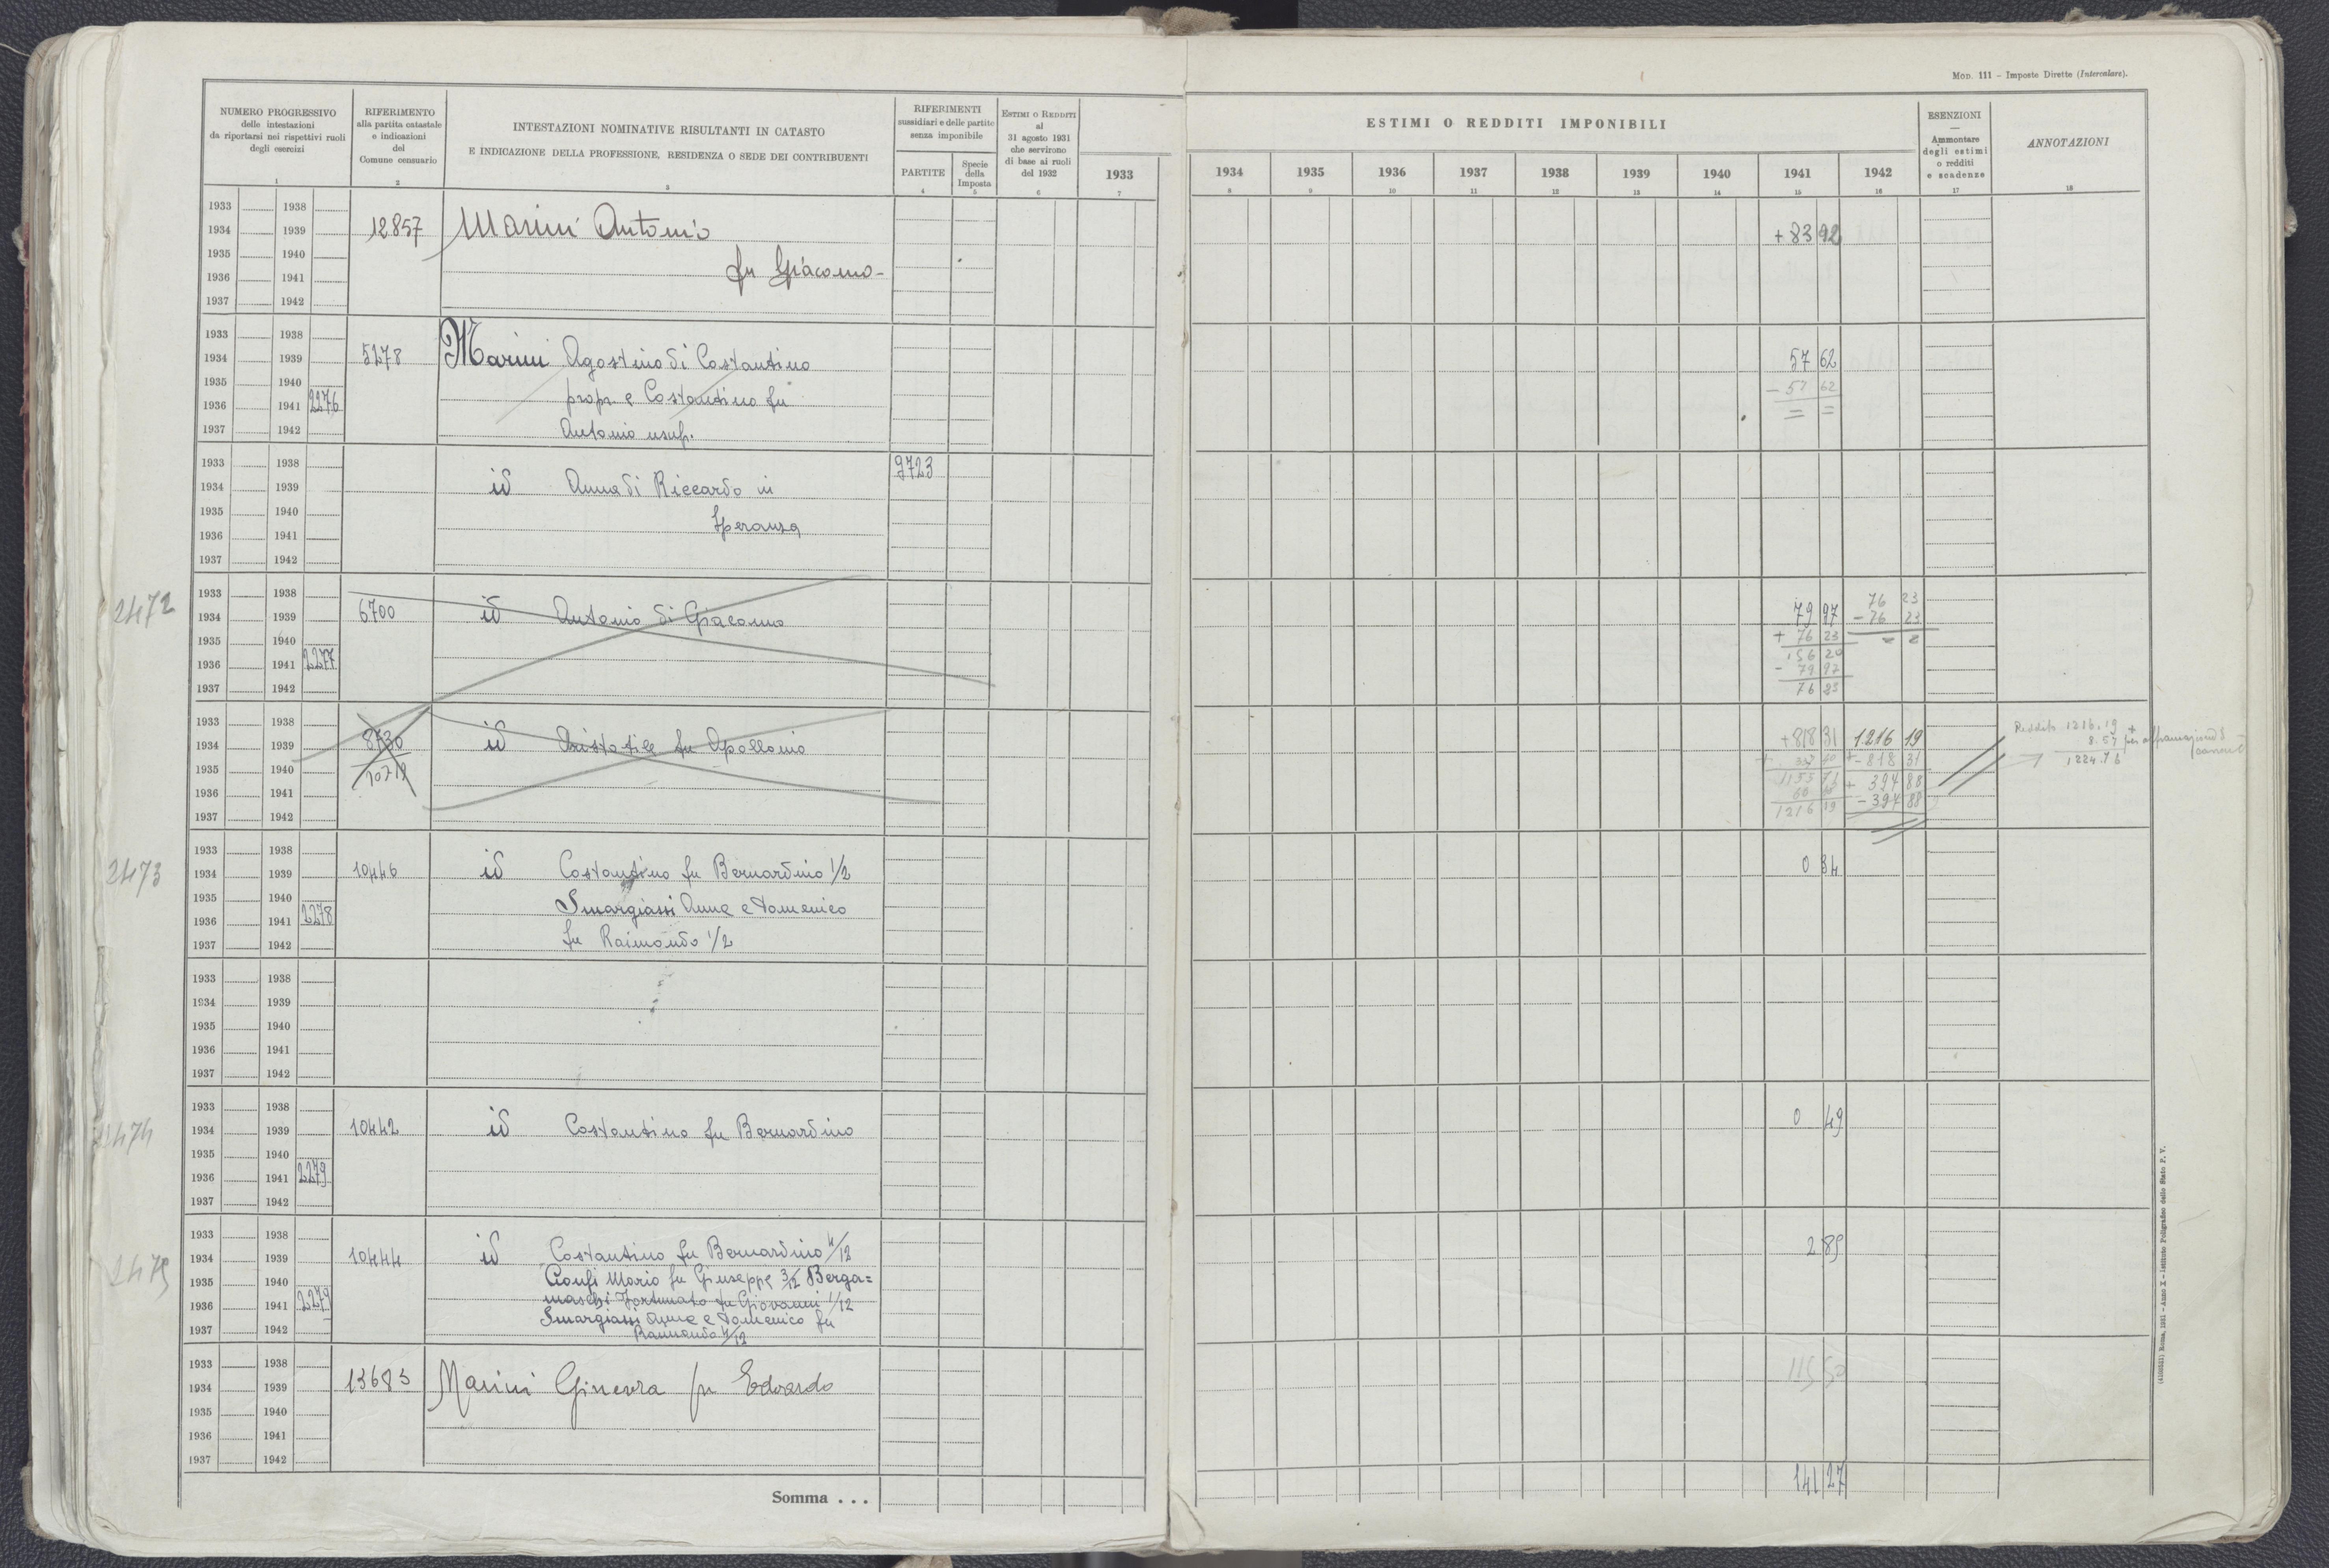 Mod. 111 – Imposte Dirette (Intercalare).
NUMERO PROGRESSIVO
delle intestazioni
da riportarsi nei rispettivi ruoli
degli esercizi
1
RIFERIMENTO
alla partita catastale
e indicazioni
del
Comune censuario
2
INTESTAZIONI NOMINATIVE RISULTANTI IN CATASTO
E INDICAZIONE DELLA PROFESSIONE, RESIDENZA O SEDE DEI CONTRIBUENTI
3
RIFERIMENTI
sussidiari e delle partite
senza imponibile
PARTITE
4
Specie
della
Imposta
5
Estimi o Redditi
al
31 agosto 1931
che servirono
di base ai ruoli
del 1932
6
1933
7
ESTIMI O REDDITI IMPONIBILI
1934 1935 1936 1937 1938 1939 1940 1941 1942
8 9 10 11 12 13 14 15 16
ESENZIONI
—
Ammontare
degli estimi
o redditi
e scadenze
17
ANNOTAZIONI
18
1933 1938
1934 1939 12857 Marini Antonio + 83 92
1935 1940
1936 1941 fu Giacomo -
1937 1942
1933 1938
1934 1939 5278 Marini Agostino di Costantino 57 62
1935 1940 - 57 62
1936 1941 2276 propr e Costantino fu = =
1937 1942 Antonio usuf.
1933 1938 9723
1934 1939 id Anna di Riccardo in
1935 1940 Speranza
1936 1941
1937 1942
2472
1933 1938 76 23
1934 1939 6700 id Antonio di Giacomo 79 97 - 76 23
1935 1940 + 76 23 = =
156 20
1936 1941 2277 - 79 97
1937 1942 76 23
1933 1938 Reddito 1216.19 +
1934 1939 8730 id Aristotile fu Apollonio + 818 31 1216 19 8.57 per affrancazione
1935 1940 10719 - 818 31 1224.76
1936 1941 + 394 88
- 394 88
1937 1942 1216 19
2473
1933 1938
1934 1939 10446 id Costantino fu Bernardino 1/2 0 34
1935 1940 Smargiassi Anna e Domenico
1936 1941 2278
1937 1942 fu Raimondo 1/2
1933 1938
1934 1939
1935 1940
1936 1941
1937 1942
2474
1933 1938
1934 1939 10442 id Costantino fu Bernardino 0 49
1935 1940
1936 1941 2279
1937 1942
2475
1933 1938
1934 1939 10444 id Costantino fu Bernardino 4/12 2 89
1935 1940 Cionfi Mario fu Giuseppe 3/12 Berga=
1936 1941 2279 maschi Fortunato fu Giovanni 1/12
Smargiassi Anna e Domenico fu
1937 1942 Raimondo 4/12
1933 1938
1934 1939 13683 Marini Ginevra fu Edoardo 115 50
1935 1940
1936 1941
1937 1942
Somma . . . 141 27
(4100551) Roma, 1931 – Anno X – Istituto Poligrafico dello Stato P. V.